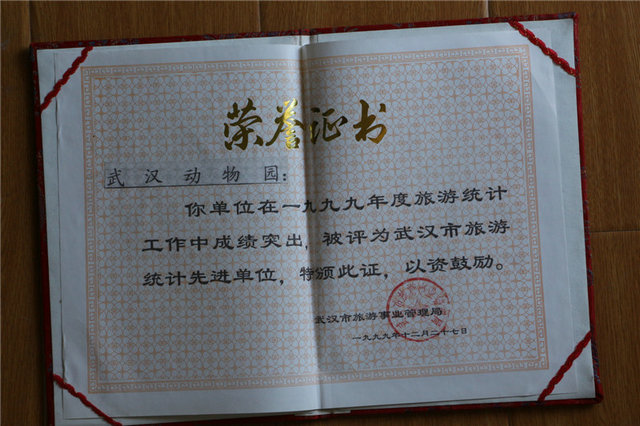 荣誉证书
武汉动物园：
你单位在一九九九年度旅游统计
工作中成绩突出，被评为武汉市旅游
统计先进单位，特颁此证，以资鼓励。
武汉市旅游事业管理局
一九九九年十二月二十七日